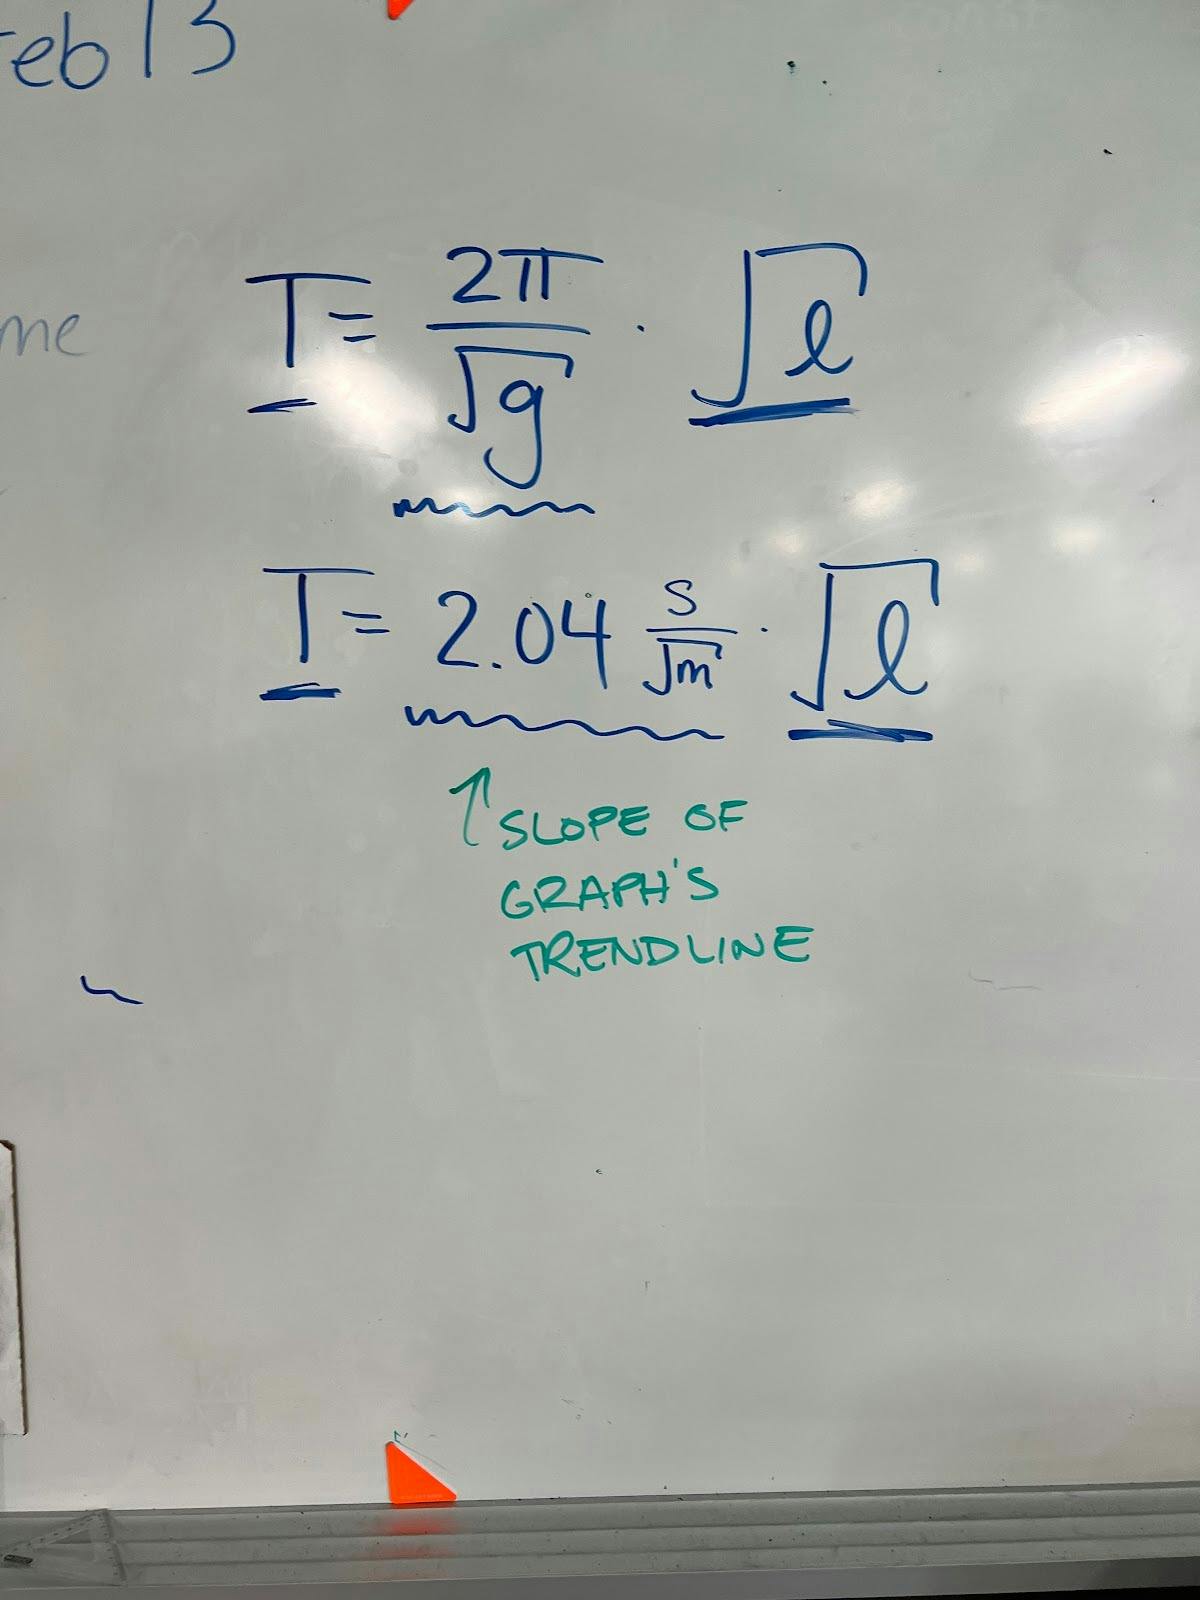 Feb 13
me
T = 2π/√g · √l
T = 2.04 s/√m · √l
↑ SLOPE OF
GRAPH'S
TRENDLINE